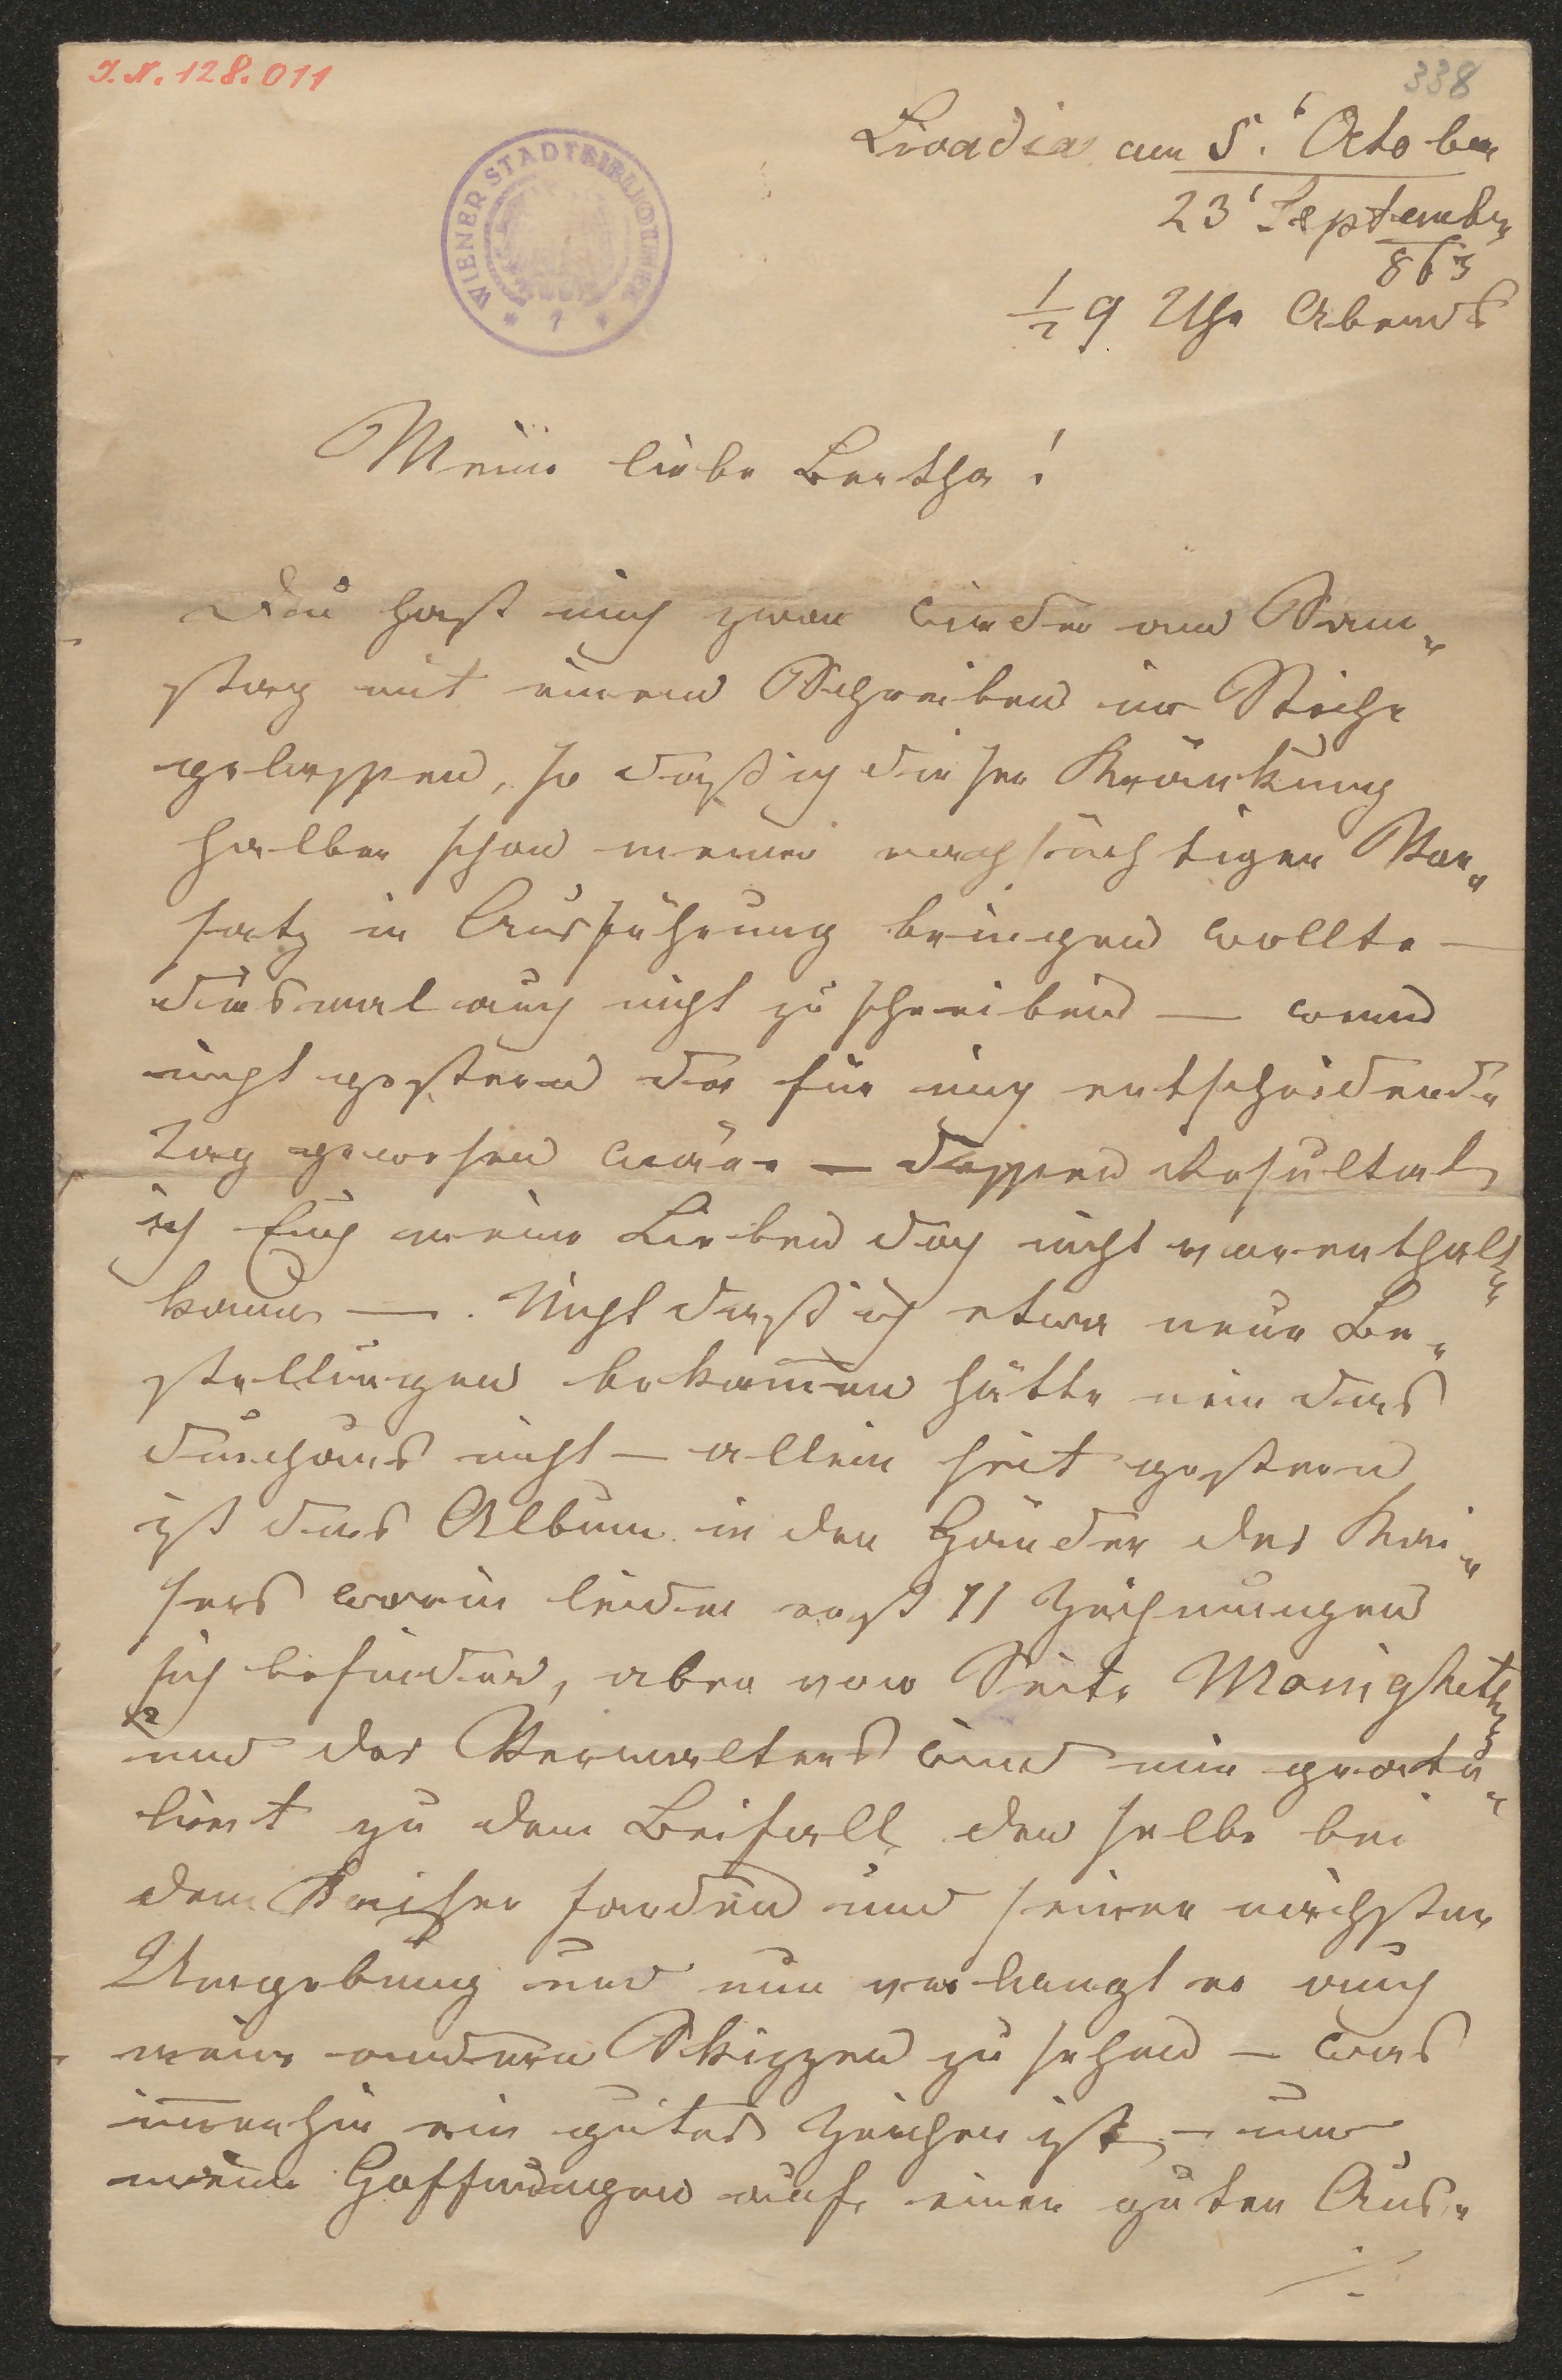 I. N. 128.011
338
WIENER STADTBIBLIOTHEK
* 1 *
Livadia am 5.' October
23' September
863
½ 9 Uhr Abends
Meine liebe Bertha!
Du hast mich zwar wieder am Sam„
stag mit einem Schreiben im Stiche
gelassen, so daß ich dieser Kränkung
halber schon meinen rachsüchtigen Vor„
satz in Ausführung bringen wollte —
diesmal auch nicht zu schreiben — wenn
nicht gestern der für mich entscheidende
Tag gewesen wäre — dessen Resultat
ich Euch meine Lieben doch nicht vorenthalten
kann —. Nicht daß ich etwa neue Be„
stellungen bekommen hätte nein das
durchaus nicht — allein seit gestern
ist das Album in den Händen des Kai„
sers worin leider erst 11 Zeichnungen
sich befinden, aber von Seite Monighettis
und des Verwalters wird mir gratu„
liert zu dem Beifall den selbe bei
dem Kaiser fanden und seiner nächsten
Umgebung und nun verlangt er auch
meine anderen Skizzen zu sehen — was
immerhin ein gutes Zeichen ist, — und
meine Hoffnungen auf einen guten Aus„
./.